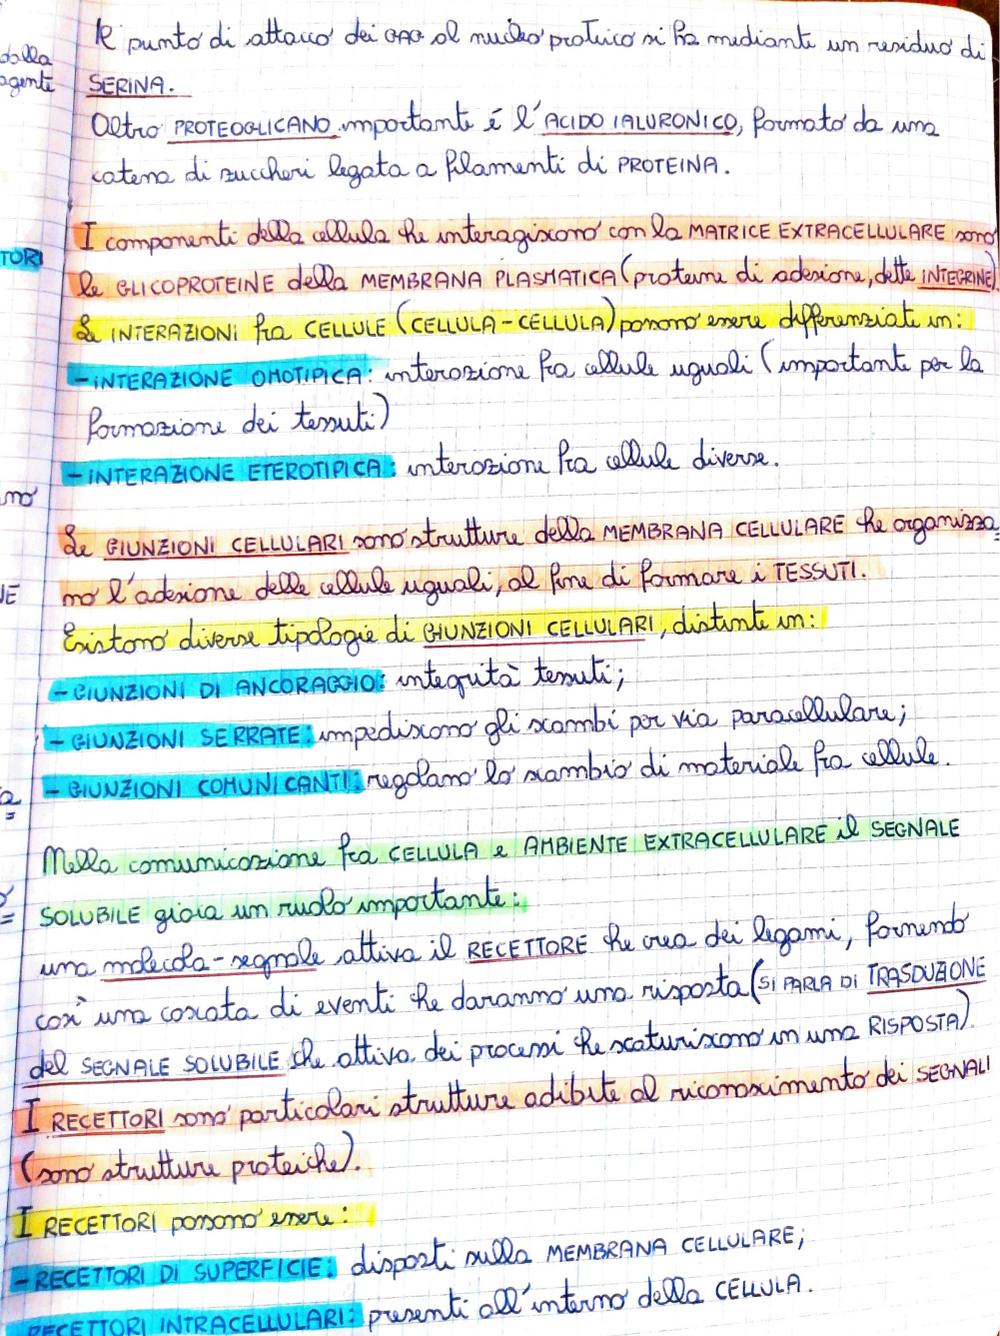 Il punto di attacco dei GAG al nucleo proteico si ha mediante un residuo di
dalla
agente
SERINA.
Altro PROTEOGLICANO importante é l'ACIDO IALURONICO, formato da una
catena di zuccheri legata a filamenti di PROTEINA.
I componenti della cellula che interagiscono con la MATRICE EXTRACELLULARE sono
TORI
le GLICOPROTEINE della MEMBRANA PLASMATICA (proteine di adesione, dette INTEGRINE).
Le INTERAZIONI fra CELLULE (CELLULA-CELLULA) possono essere differenziate in:
-INTERAZIONE OMOTIPICA: interazione fra cellule uguali (importante per la
formazione dei tessuti)
-INTERAZIONE ETEROTIPICA: interazione fra cellule diverse.
no
Le GIUNZIONI CELLULARI sono strutture della MEMBRANA CELLULARE che organizza=
NE
no l'adesione delle cellule uguali, al fine di formare i TESSUTI.
Esistono diverse tipologie di GIUNZIONI CELLULARI, distinte in:
-GIUNZIONI DI ANCORAGGIO: integrità tessuti;
-GIUNZIONI SERRATE: impediscono gli scambi per via paracellulare;
-GIUNZIONI COMUNICANTI: regolano lo scambio di materiale fra cellule.
Nella comunicazione fra CELLULA e AMBIENTE EXTRACELLULARE il SEGNALE
SOLUBILE gioca un ruolo importante:
una molecola-segnale attiva il RECETTORE che crea dei legami, fornendo
così una cascata di eventi che daranno una risposta (SI PARLA DI TRASDUZIONE
del SEGNALE SOLUBILE che attiva dei processi che scaturiscono in una RISPOSTA).
I RECETTORI sono particolari strutture adibite al riconoscimento dei SEGNALI
(sono strutture proteiche).
I RECETTORI possono essere:
-RECETTORI DI SUPERFICIE: disposti sulla MEMBRANA CELLULARE;
RECETTORI INTRACELLULARI: presenti all'interno della CELLULA.